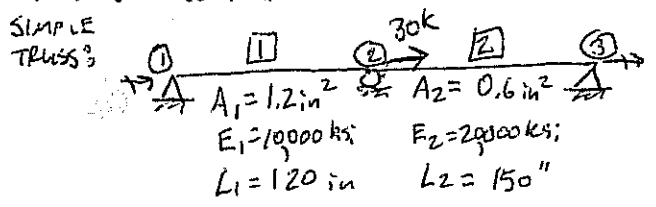 SIMPLE
TRUSS:
30k
① 1 ② 2 ③
A₁ = 1.2 in² A₂ = 0.6 in²
E₁ = 10,000 ksi E₂ = 20,000 ksi
L₁ = 120 in L₂ = 150"